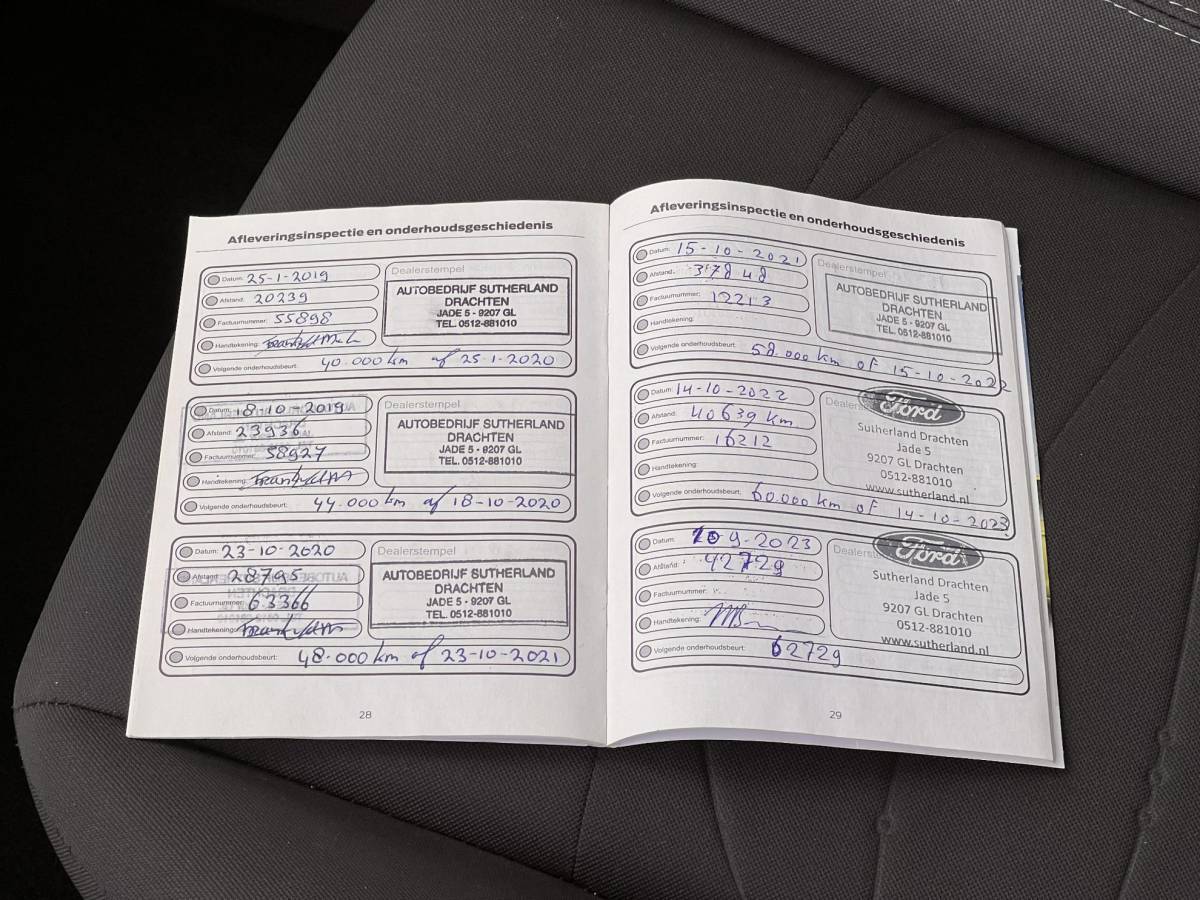 Afleveringsinspectie en onderhoudsgeschiedenis
Datum: 25-1-2019
Afstand: 20239
Factuurnummer: 55898
Handtekening:
Volgende onderhoudsbeurt: 40.000 km of 25-1-2020
Dealerstempel
AUTOBEDRIJF SUTHERLAND
DRACHTEN
JADE 5 - 9207 GL
TEL. 0512-881010
Datum: 18-10-2019
Afstand: 23936
Factuurnummer: 58927
Handtekening:
Volgende onderhoudsbeurt: 44.000 km of 18-10-2020
Dealerstempel
AUTOBEDRIJF SUTHERLAND
DRACHTEN
JADE 5 - 9207 GL
TEL. 0512-881010
Datum: 23-10-2020
Afstand: 28795
Factuurnummer: 63366
Handtekening:
Volgende onderhoudsbeurt: 48.000 km of 23-10-2021
Dealerstempel
AUTOBEDRIJF SUTHERLAND
DRACHTEN
JADE 5 - 9207 GL
TEL. 0512-881010
28
Afleveringsinspectie en onderhoudsgeschiedenis
Datum: 15-10-2021
Afstand: 37848
Factuurnummer: 12213
Handtekening:
Volgende onderhoudsbeurt: 58.000 km of 15-10-2022
Dealerstempel
AUTOBEDRIJF SUTHERLAND
DRACHTEN
JADE 5 - 9207 GL
TEL. 0512-881010
Datum: 14-10-2022
Afstand: 40639 km
Factuurnummer: 16212
Handtekening:
Volgende onderhoudsbeurt: 60.000 km of 14-10-2023
Ford
Sutherland Drachten
Jade 5
9207 GL Drachten
0512-881010
www.sutherland.nl
Datum: 20-9-2023
Afstand: 42729
Factuurnummer:
Handtekening:
Volgende onderhoudsbeurt: 62729
Ford
Sutherland Drachten
Jade 5
9207 GL Drachten
0512-881010
www.sutherland.nl
29